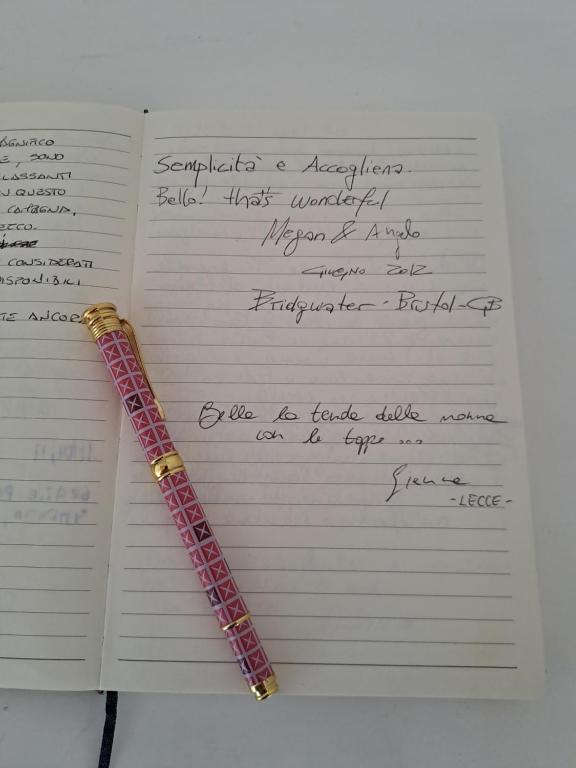 AGNIFICO
E, SONO
LASSANTI
N QUESTO
CAMPAGNA,
ECCO.
CONSIDERATI
DISPONIBILI
TE ANCORA
Semplicità e Accogliena.
Bello! that's wonderful
Megan & Angelo
Giugno 2012
Bridgwater - Bristol - GB
Bella la tenda della nonna
con le toppe ...
LECCE -